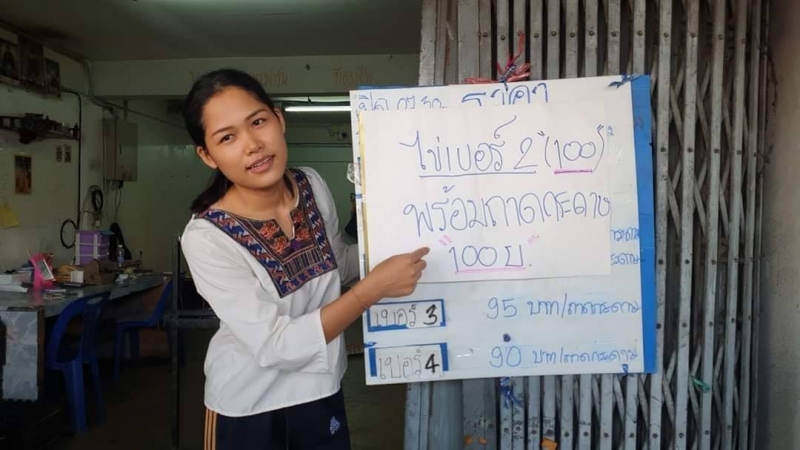 ราคา
ไข่เบอร์ 2 "(100)"
พร้อมถาดกระดาษ
"100 บ."
เบอร์ 3 95 บาท/ถาดกระดาษ
เบอร์ 4 90 บาท/ถาดกระดาษ